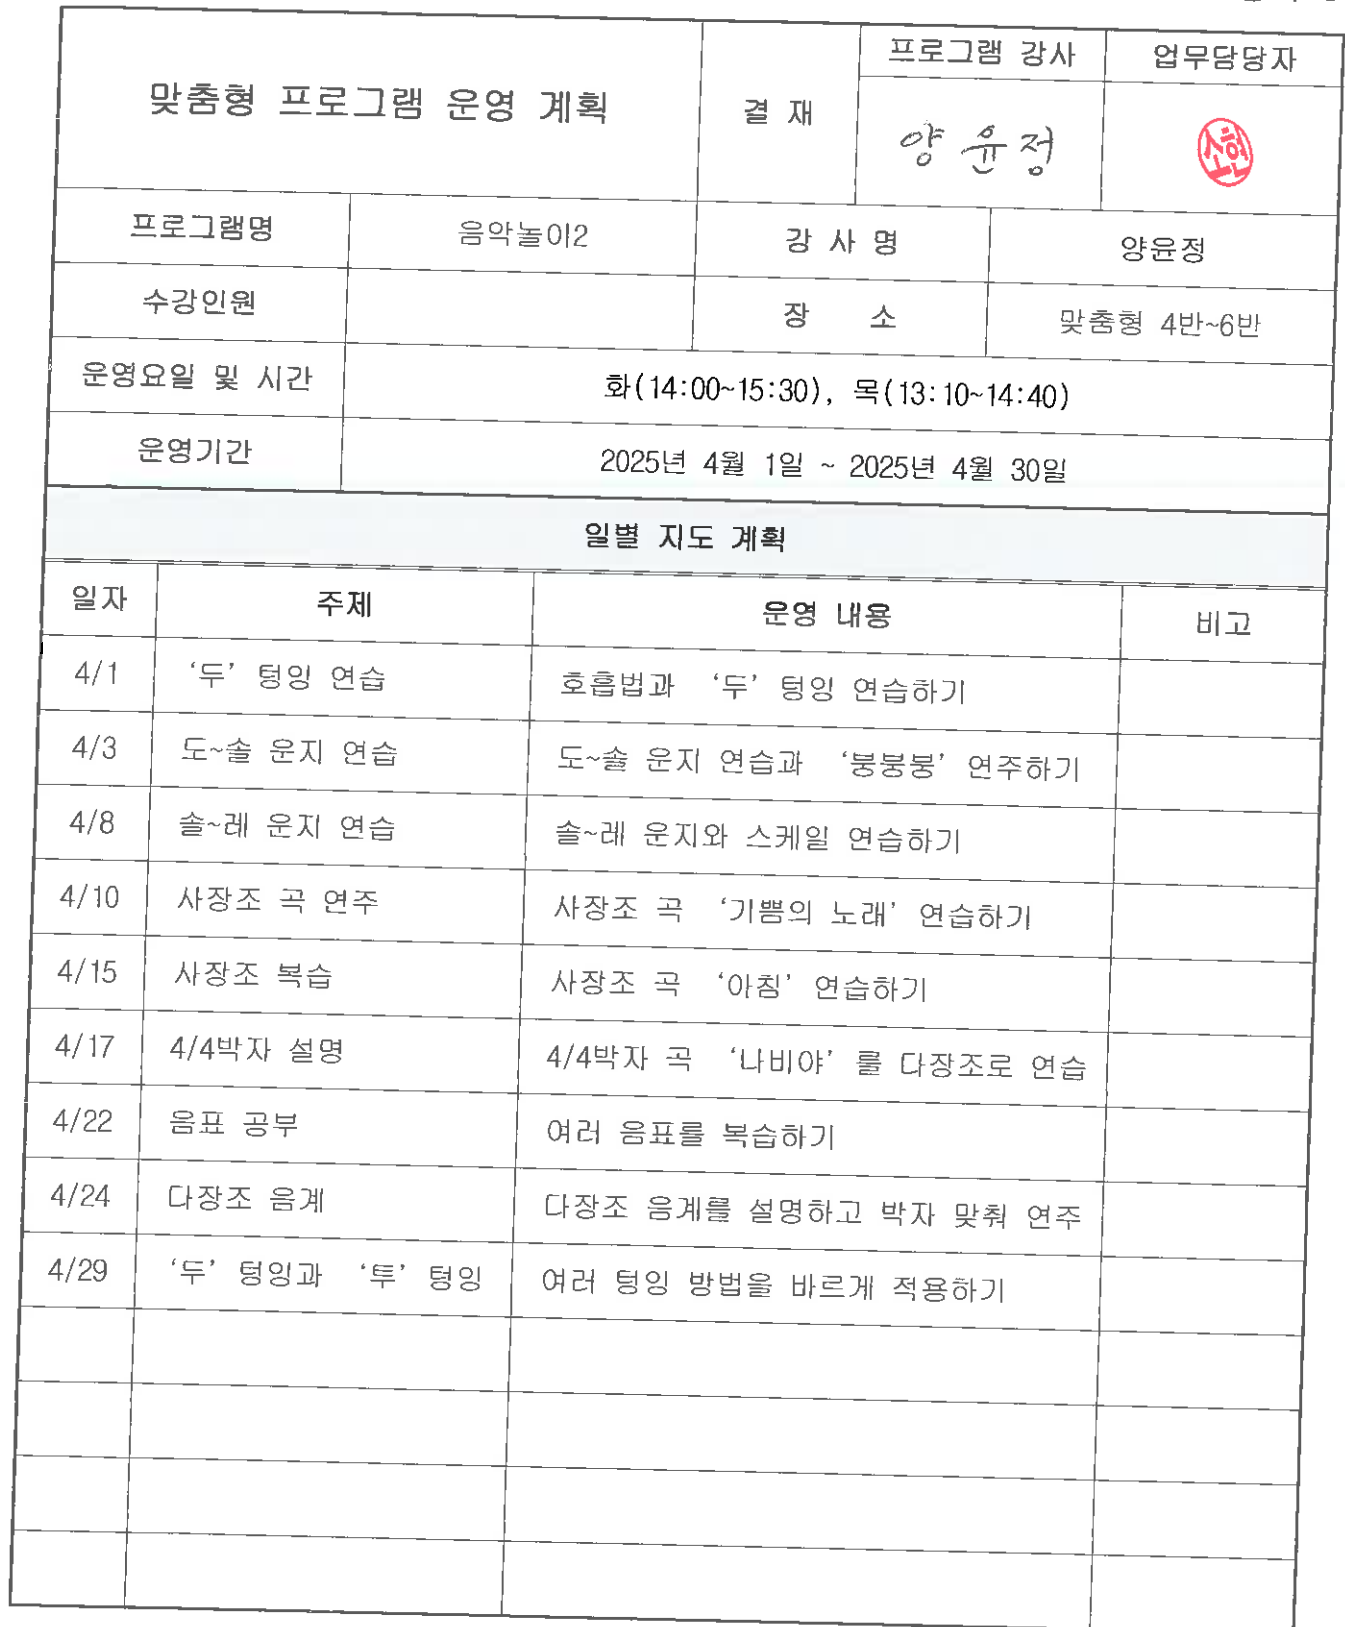 프로그램 강사 업무담당자
맞춤형 프로그램 운영 계획 결 재
양 윤 정 소현
프로그램명 음악놀이2 강 사 명 양윤정
수강인원 장 소 맞춤형 4반~6반
운영요일 및 시간 화(14:00~15:30), 목(13:10~14:40)
운영기간 2025년 4월 1일 ~ 2025년 4월 30일
일별 지도 계획
일자 주제 운영 내용 비고
4/1 ‘두’ 텅잉 연습 호흡법과 ‘두’ 텅잉 연습하기
4/3 도~솔 운지 연습 도~솔 운지 연습과 ‘붕붕붕’ 연주하기
4/8 솔~레 운지 연습 솔~레 운지와 스케일 연습하기
4/10 사장조 곡 연주 사장조 곡 ‘기쁨의 노래’ 연습하기
4/15 사장조 복습 사장조 곡 ‘아침’ 연습하기
4/17 4/4박자 설명 4/4박자 곡 ‘나비야’ 를 다장조로 연습
4/22 음표 공부 여러 음표를 복습하기
4/24 다장조 음계 다장조 음계를 설명하고 박자 맞춰 연주
4/29 ‘두’ 텅잉과 ‘투’ 텅잉 여러 텅잉 방법을 바르게 적용하기